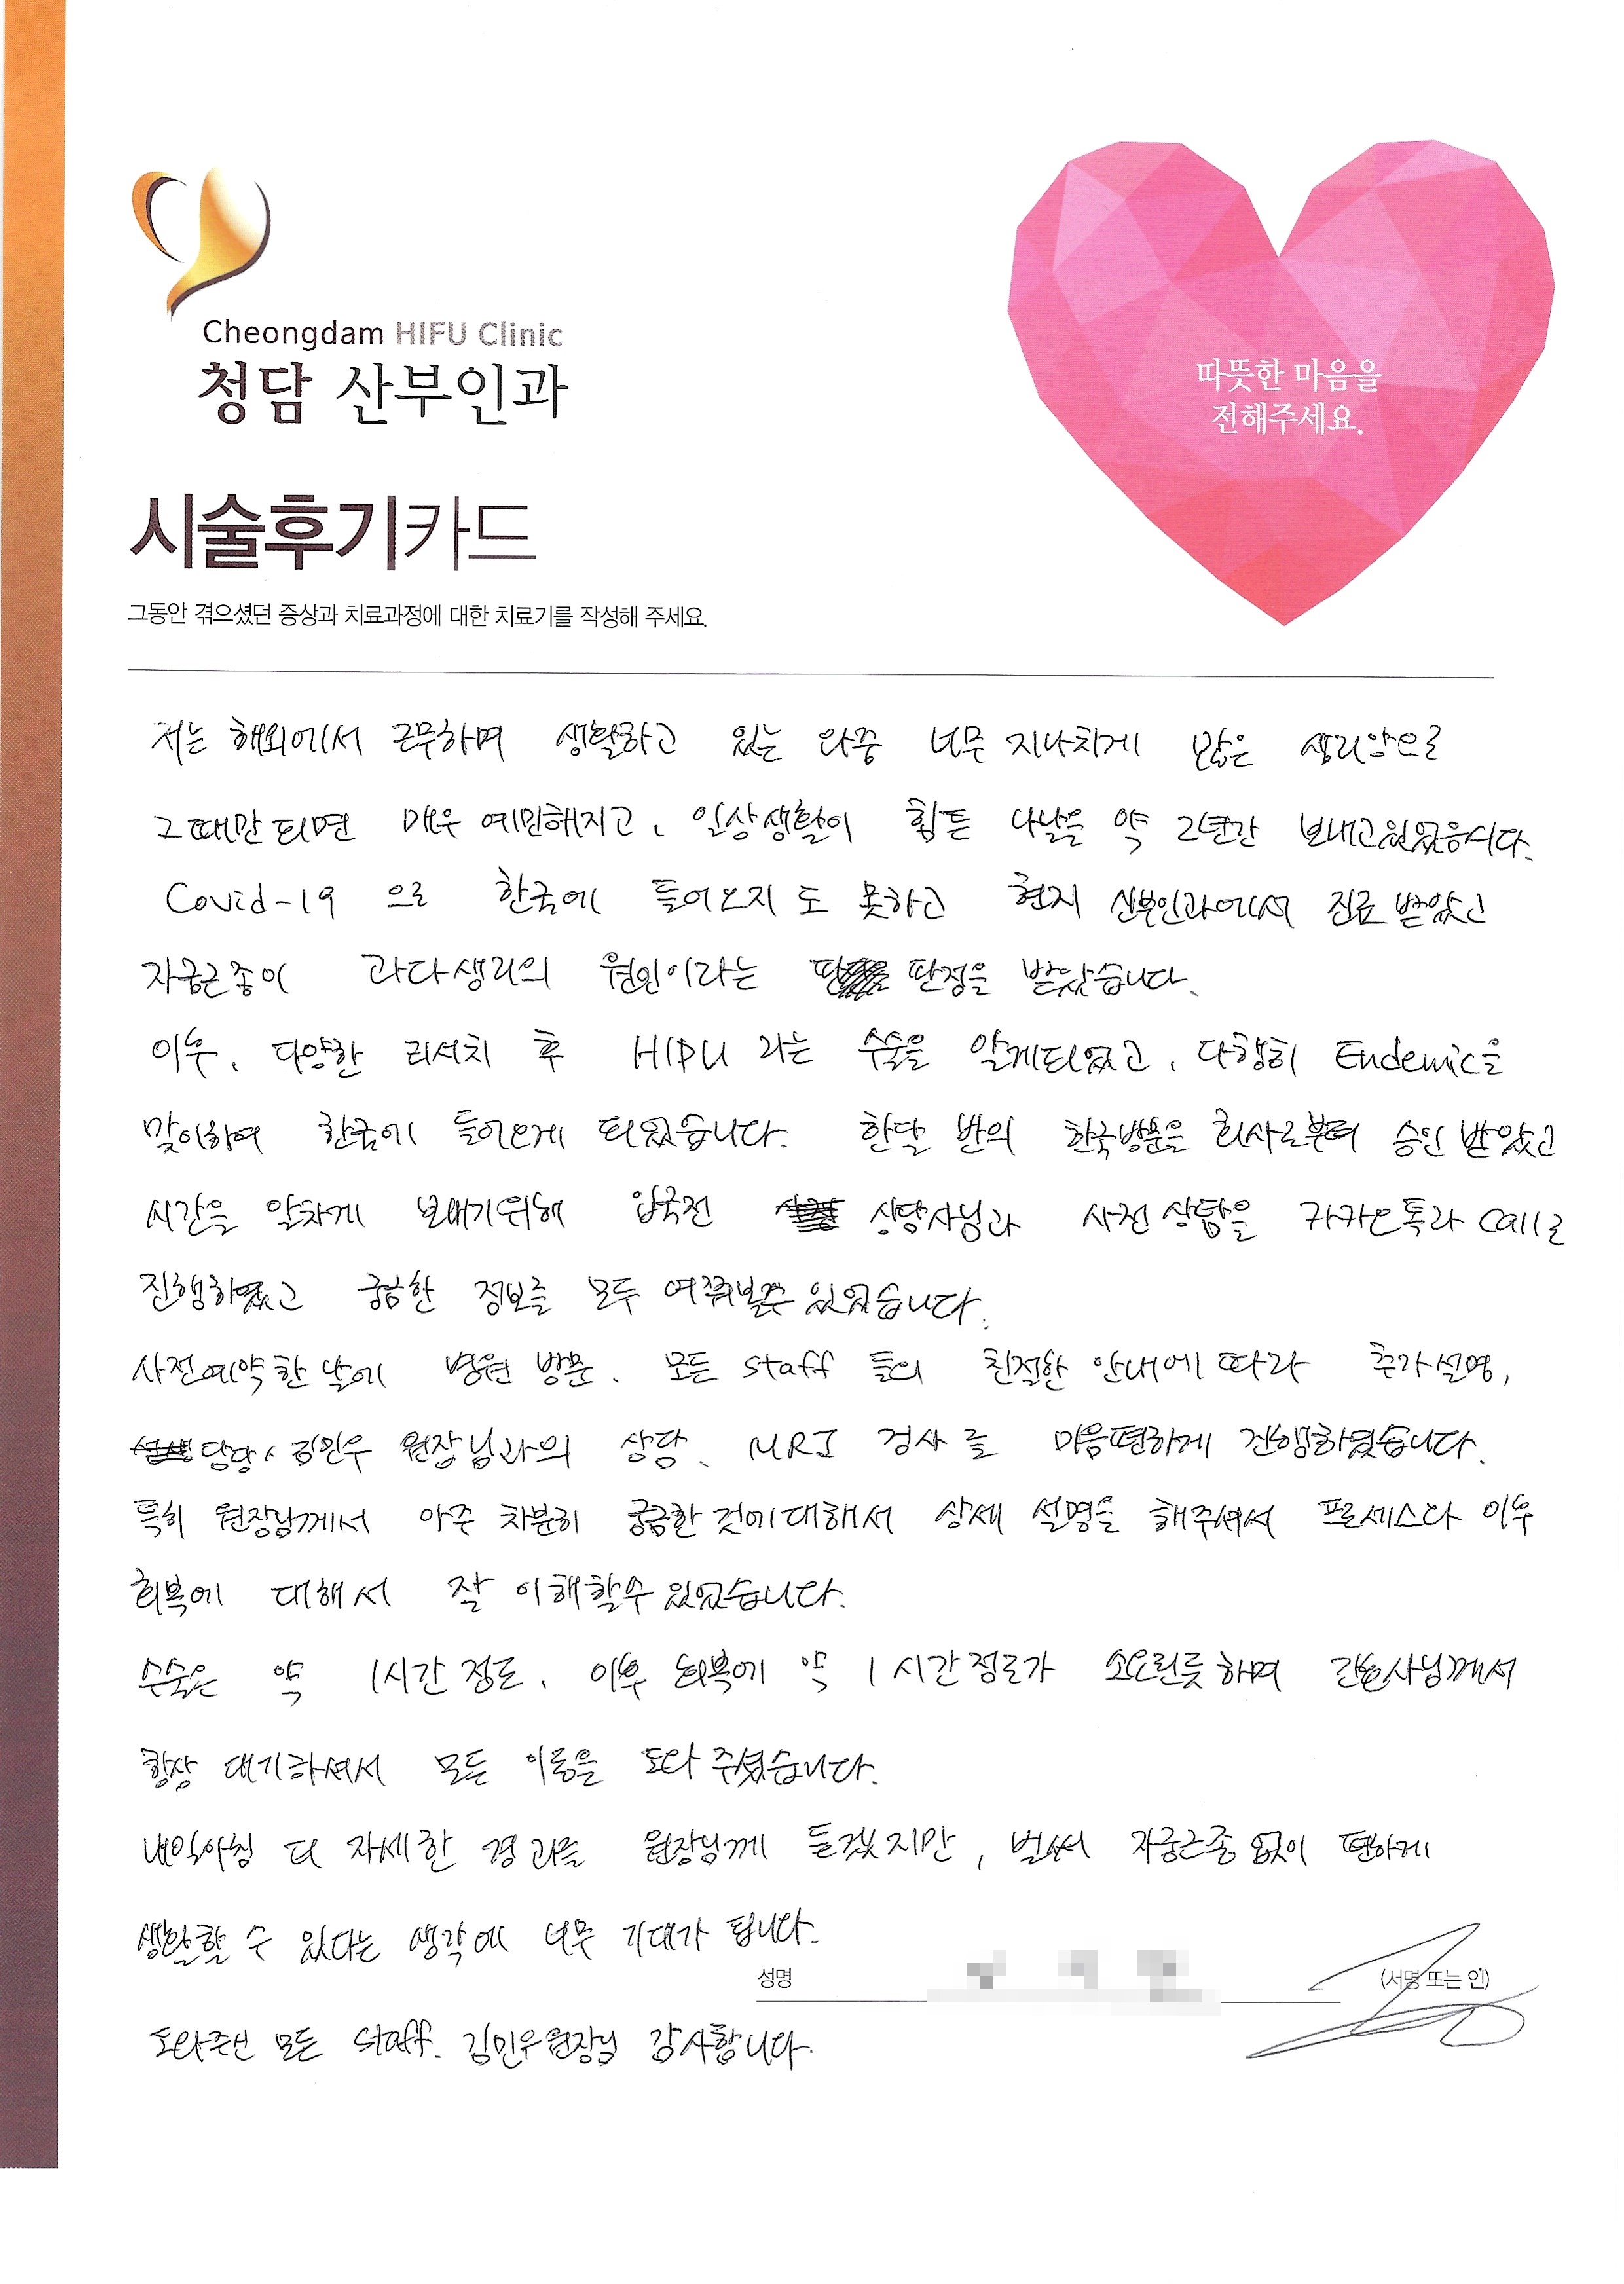 Cheongdam HIFU Clinic
청담 산부인과
따뜻한 마음을
전해주세요.
시술후기카드
그동안 겪으셨던 증상과 치료과정에 대한 치료기를 작성해 주세요.
저는 해외에서 근무하며 생활하고 있는 와중 너무 지나치게 많은 생리양으로
그때만 되면 매우 예민해지고, 일상생활이 힘든 나날을 약 2년간 보내고 있었읍니다.
Covid-19 으로 한국에 들어오지도 못하고 현지 산부인과에서 진료 받았고
자궁근종이 과다생리의 원인이라는 판정을 받았습니다.
이후, 다양한 리서치 후 HIPU 라는 수술을 알게되었고, 다행히 Endemic을
맞이하여 한국에 들어오게 되었습니다. 한달 반의 한국방문을 회사로부터 승인 받았고
시간을 알차게 보내기위해 입국전 상담사님과 사전 상담을 카카오톡과 call로
진행하였고 궁금한 정보를 모두 여쭤볼수 있었습니다.
사전예약한 날에 병원 방문. 모든 staff 들의 친절한 안내에 따라 추가설명,
담당, 김민우 원장님과의 상담, MRI 검사를 마음편하게 진행하였습니다.
특히 원장님께서 아주 차분히 궁금한 것에 대해서 상세 설명을 해주셔서 프로세스다 이후
회복에 대해서 잘 이해할수 있었습니다.
수술은 약 1시간 정도, 이후 회복에 약 1시간정도가 소요된듯 하며 간호사님께서
항상 대기하셔서 모든 이동을 도와 주셨습니다.
내일아침 더 자세한 경과를 원장님께 듣겠지만, 벌써 자궁근종 없이 편하게
생활할 수 있다는 생각에 너무 기대가 됩니다.
성명 (서명 또는 인)
도와주신 모든 staff. 김민우원장님 감사합니다.